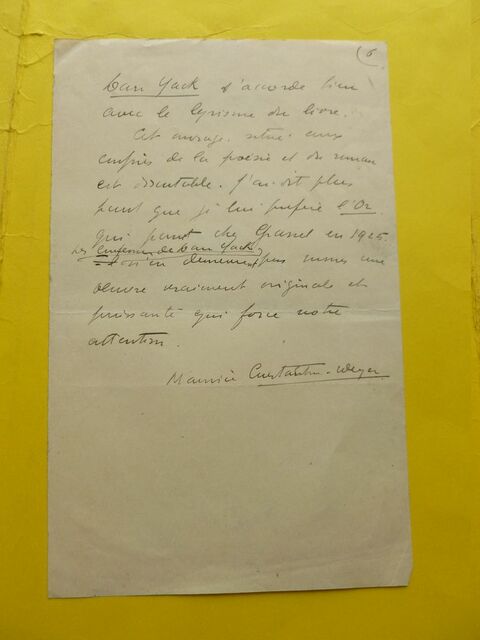 (6
Dan Yack s'accorde bien
avec le lyrisme du livre.
Cet ouvrage situé aux
confins de la poésie et du roman
est discutable. J'ai dit plus
haut que je lui préfère l'Or
qui parut chez Grasset en 1925.
Les Confessions de Dan Yack,
n'en demeurent pas moins une
œuvre vraiment originale et
puissante qui force notre
attention.
Maurice Constantin-Weyer